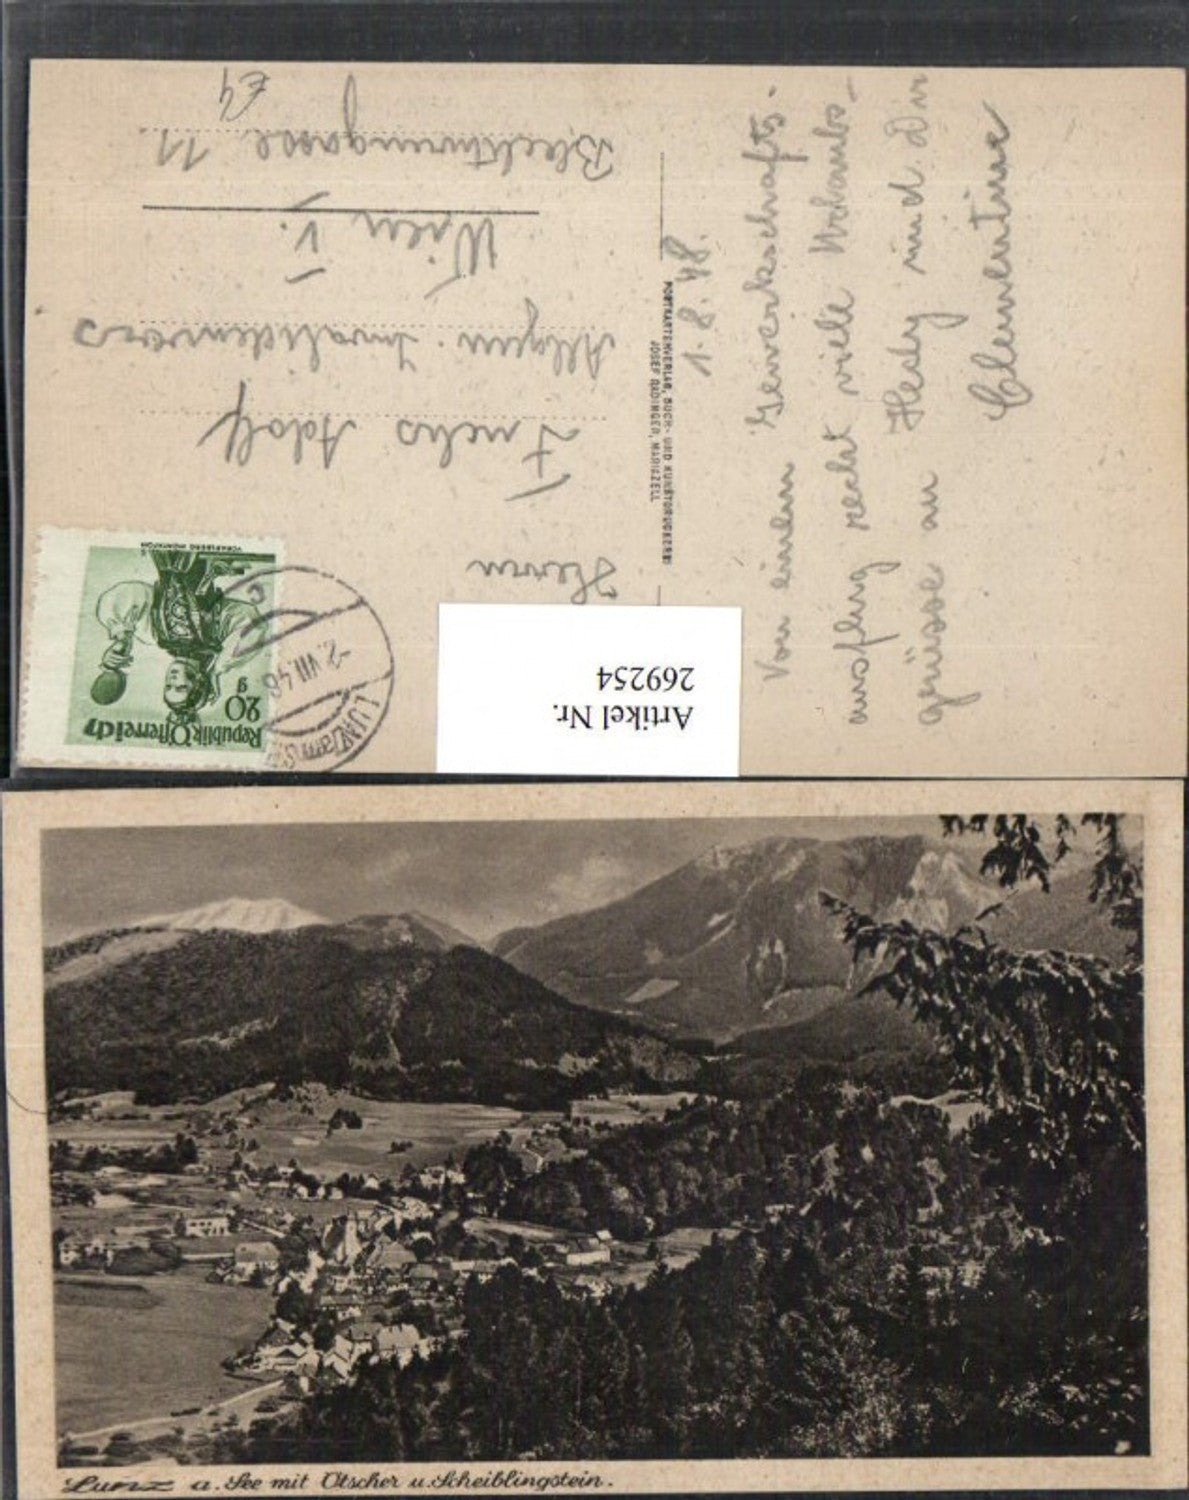 1.8.48.
Von einem Gewerkschafts-
ausflug recht viele Urlaubs-
grüsse an Hedy und Dir
Clementine
POSTKARTENVERLAG, BUCH- UND KUNSTDRUCKEREI
JOSEF RADINGER, MARIAZELL
Herrn
Fuchs Adolf
Allgem. Invalidenvers
Wien V.
Blechturmgasse 11
Republik Österreich
20
g
VORARLBERG MONTAFON
LUNZ am S
-2.VIII.48
c
Artikel Nr.
269254
Lunz a. See mit Ötscher u. Scheiblingstein.